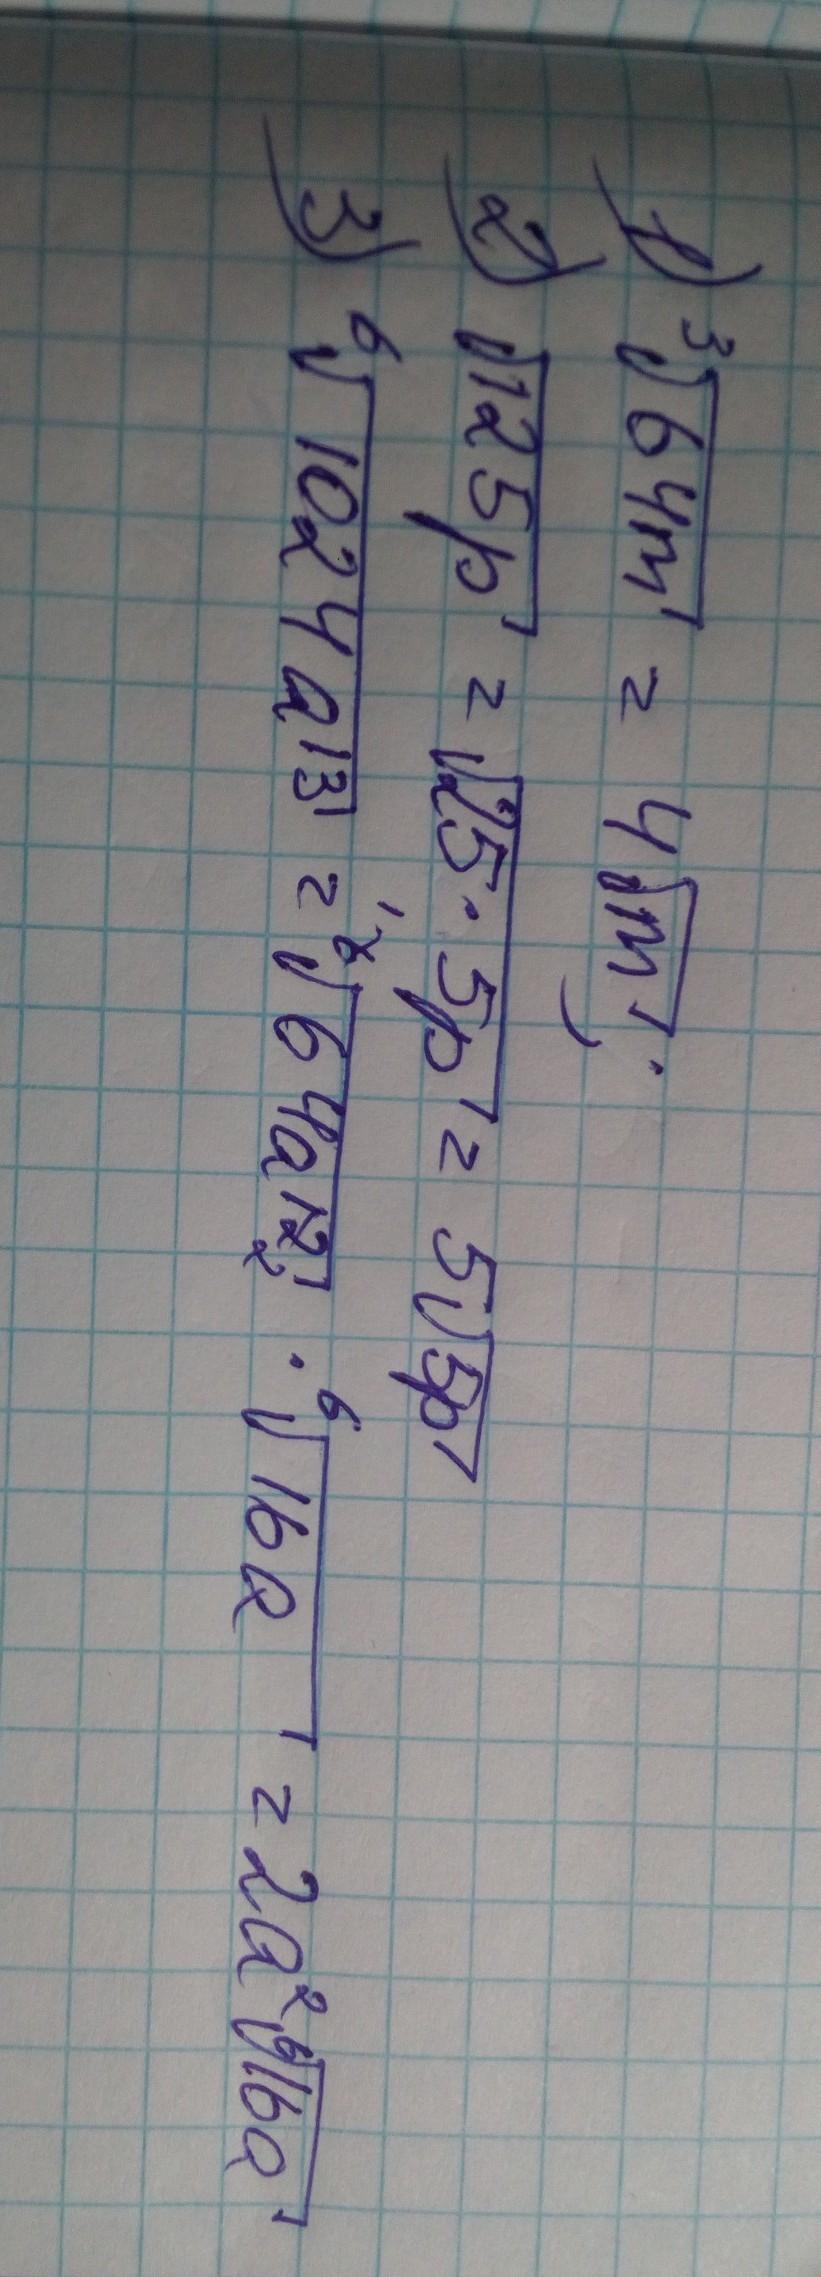 1) ³√64m = 4√m;
2) √125p = √25·5p = 5√5p
3) ⁶√1024a¹³ = ⁶√64a¹² · ⁶√16a = 2a² ⁶√16a